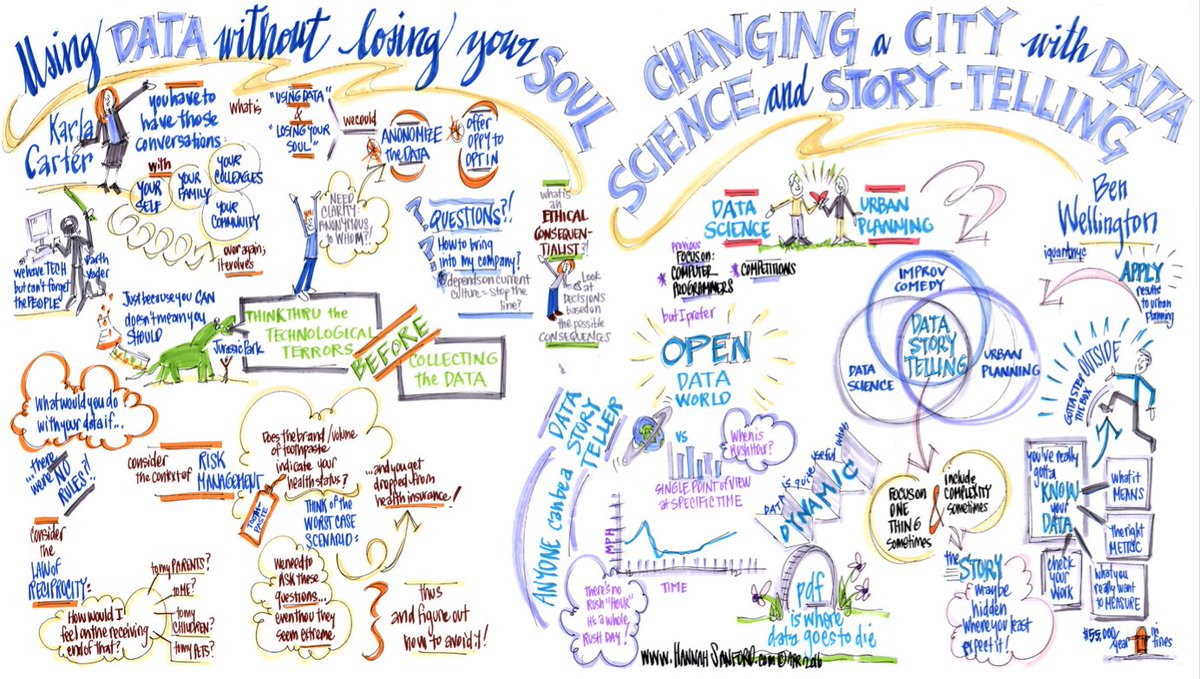 Using DATA without losing your SOUL
Karla
Carter
you have to
have those
conversations:
with
YOUR
SELF
YOUR
FAMILY
YOUR
COLLEAGUES
YOUR
COMMUNITY
over again,
it evolves
what is
"USING DATA"
&
"LOSING YOUR
SOUL"
we could
ANONOMIZE
the DATA
offer
opp'ty to
OPT IN
NEED
CLARITY:
ANONYMOUS
to WHOM?
QUESTIONS?!
How to bring
into my company?
depends on current
culture = stop the
line?
what is
an
ETHICAL
CONSEQUEN-
TIALIST?!
Look
at
DECISIONS
based on
the possible
CONSEQUENCES
we have TECH
but can't forget
the PEOPLE
Darth
Vader
Just because you CAN
doesn't mean you
SHOULD
Jurassic Park
THINK THRU the
TECHNOLOGICAL
TERRORS
BEFORE
COLLECTING
the DATA
What would you do
with your data if...
...there
were NO
RULES?!
consider
the context of
RISK
MANAGEMENT
Does the brand/volume
of toothpaste
indicate your
health status?
TOOTH
PASTE
...and you get
dropped from
health insurance!
THINK of the
WORST CASE
SCENARIO:
consider
the
LAW of
RECIPROCITY:
How would I
feel on the receiving
end of that?
to my PARENTS?
to ME?
to my
CHILDREN?
to my PETS?
We need to
ASK these
questions...
even thou they
seem extreme
thus
and figure out
how to avoid it!
CHANGING a CITY with DATA
SCIENCE and STORY-TELLING
DATA
SCIENCE
URBAN
PLANNING
previous
FOCUS on:
* COMPUTER
PROGRAMMERS
* COMPETITIONS
but I prefer
OPEN
DATA
WORLD
Ben
Wellington
iquantnyc
APPLY
results
to urban
planning
IMPROV
COMEDY
DATA
STORY
TELLING
DATA
SCIENCE
URBAN
PLANNING
GOTTA STEP OUTSIDE
THE BOX
ANYONE can be a DATA
STORY
TELLER
VS
SINGLE POINT of VIEW
at SPECIFIC TIME
When is
Rush Hour?
MPH
TIME
there's no
Rush "HOUR"
it's a whole
RUSH DAY!
DATA is quite useful when
DYNAMIC
pdf
is where
data goes to die
FOCUS on
ONE
THING
sometimes
&
include
COMPLEXITY
sometimes
the STORY
may be
hidden
where you least
expect it!
you've really
gotta
KNOW
your
DATA
what it
MEANS
the right
METRIC
check
your
WORK
what you
really want
to MEASURE
$55,000/
year
in
fines
www.HANNAHSANFORD.com © Apr 2016